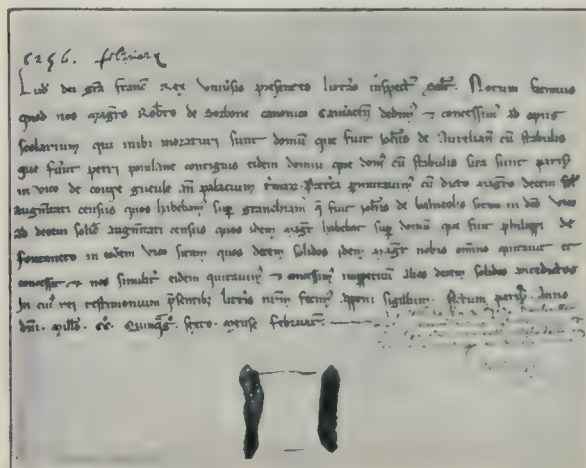 1256. februar
Lud dei gra franc Rex Univsis presentes litas inspect salt. Notum facimus
quod nos magro Robto de Sorbone canonico Camacen dedim et concessim ad opus
scolarium qui inibi moraturi sunt domu que fuit Johis de Aurelian cu stabulis
que fuit petri poulane contiguis eidem domui que dom cu stabulis sita sunt paris
in vico de coupe gueule an palacium tmar. Ptea pmutavim cu dicto magro decem sol
augmtati census quos habebam sup granchiam q fuit Johis de balneolis sitam in do vico
ad decem solid augmtati census quos idem magr habebat sup domu que fuit philippi de
fontaneto in eodem vico sitam quos decem solidos idem magr nobis omino quitavit et
concessit et nos similit eidem quitavim et concessim imppetuu alios decem solidos antedictos
In cui rei testimonium psentib litis nrm fecim apponi sigillum. Actum paris. Anno
dni. millo. cc. Quinqg. sexto. mense februar.